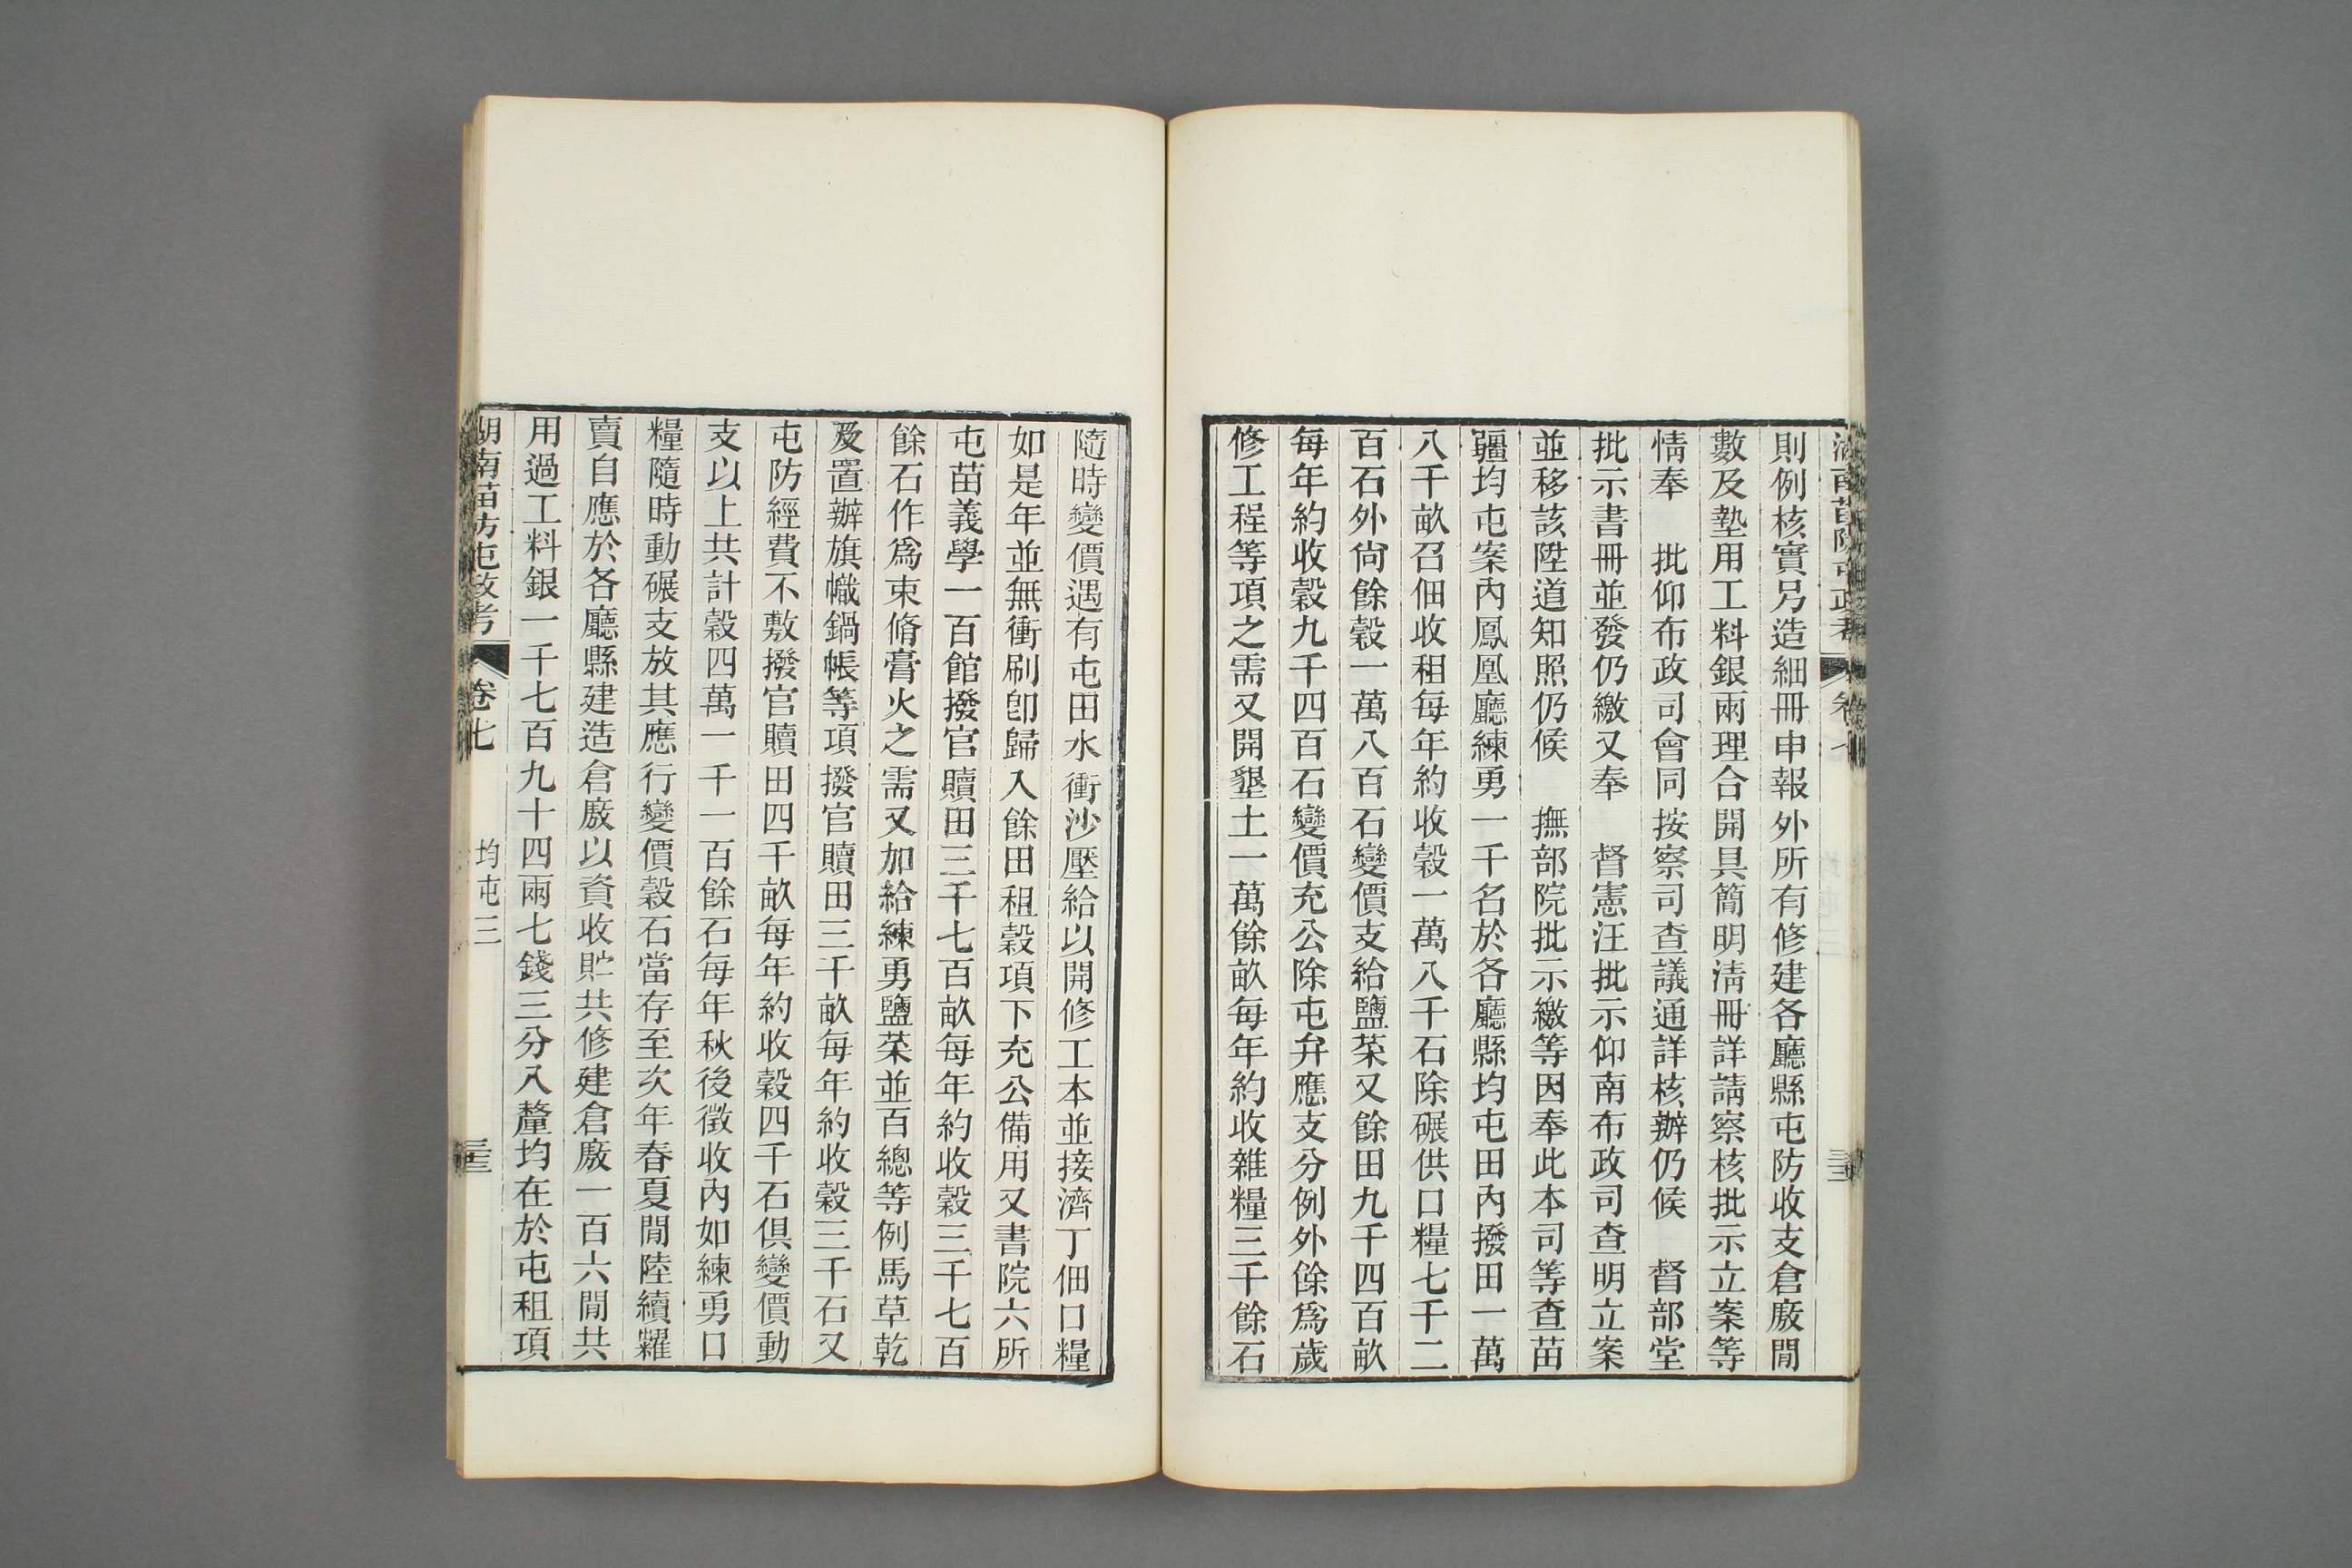 則例核實另造細冊申報外所有修建各廳縣屯防收支倉廒閒
數及墊用工料銀兩理合開具簡明淸冊詳請察核批示立案等
情奉　批仰布政司會同按察司查議通詳核辦仍候　督部堂
批示書冊並發仍繳又奉　督憲汪批示仰南布政司查明立案
並移該陞道知照仍候　撫部院批示繳等因奉此本司等查苗
疆均屯案內鳳凰廳練勇一千名於各廳縣均屯田內撥田一萬
八千畝召佃收租每年約收穀一萬八千石除碾供口糧七千二
百石外尙餘穀一萬八百石變價支給鹽菜又餘田九千四百畝
每年約收穀九千四百石變價充公除屯弁應支分例外餘爲歲
修工程等項之需又開墾土一萬餘畝每年約收雜糧三千餘石
隨時變價遇有屯田水衝沙壓給以開修工本並接濟丁佃口糧
如是年並無衝刷卽歸入餘田租穀項下充公備用又書院六所
屯苗義學一百館撥官贖田三千七百畝每年約收穀三千七百
餘石作爲束脩膏火之需又加給練勇鹽菜並百總等例馬草乾
及置辦旗幟鍋帳等項撥官贖田三千畝每年約收穀三千石又
屯防經費不敷撥官贖田四千畝每年約收穀四千石俱變價動
支以上共計穀四萬一千一百餘石每年秋後徵收內如練勇口
糧隨時動碾支放其應行變價穀石當存至次年春夏閒陸續糶
賣自應於各廳縣建造倉廒以資收貯共修建倉廒一百六閒共
用過工料銀一千七百九十四兩七錢三分八釐均在於屯租項
湖南苗防屯政考　卷七　均屯三